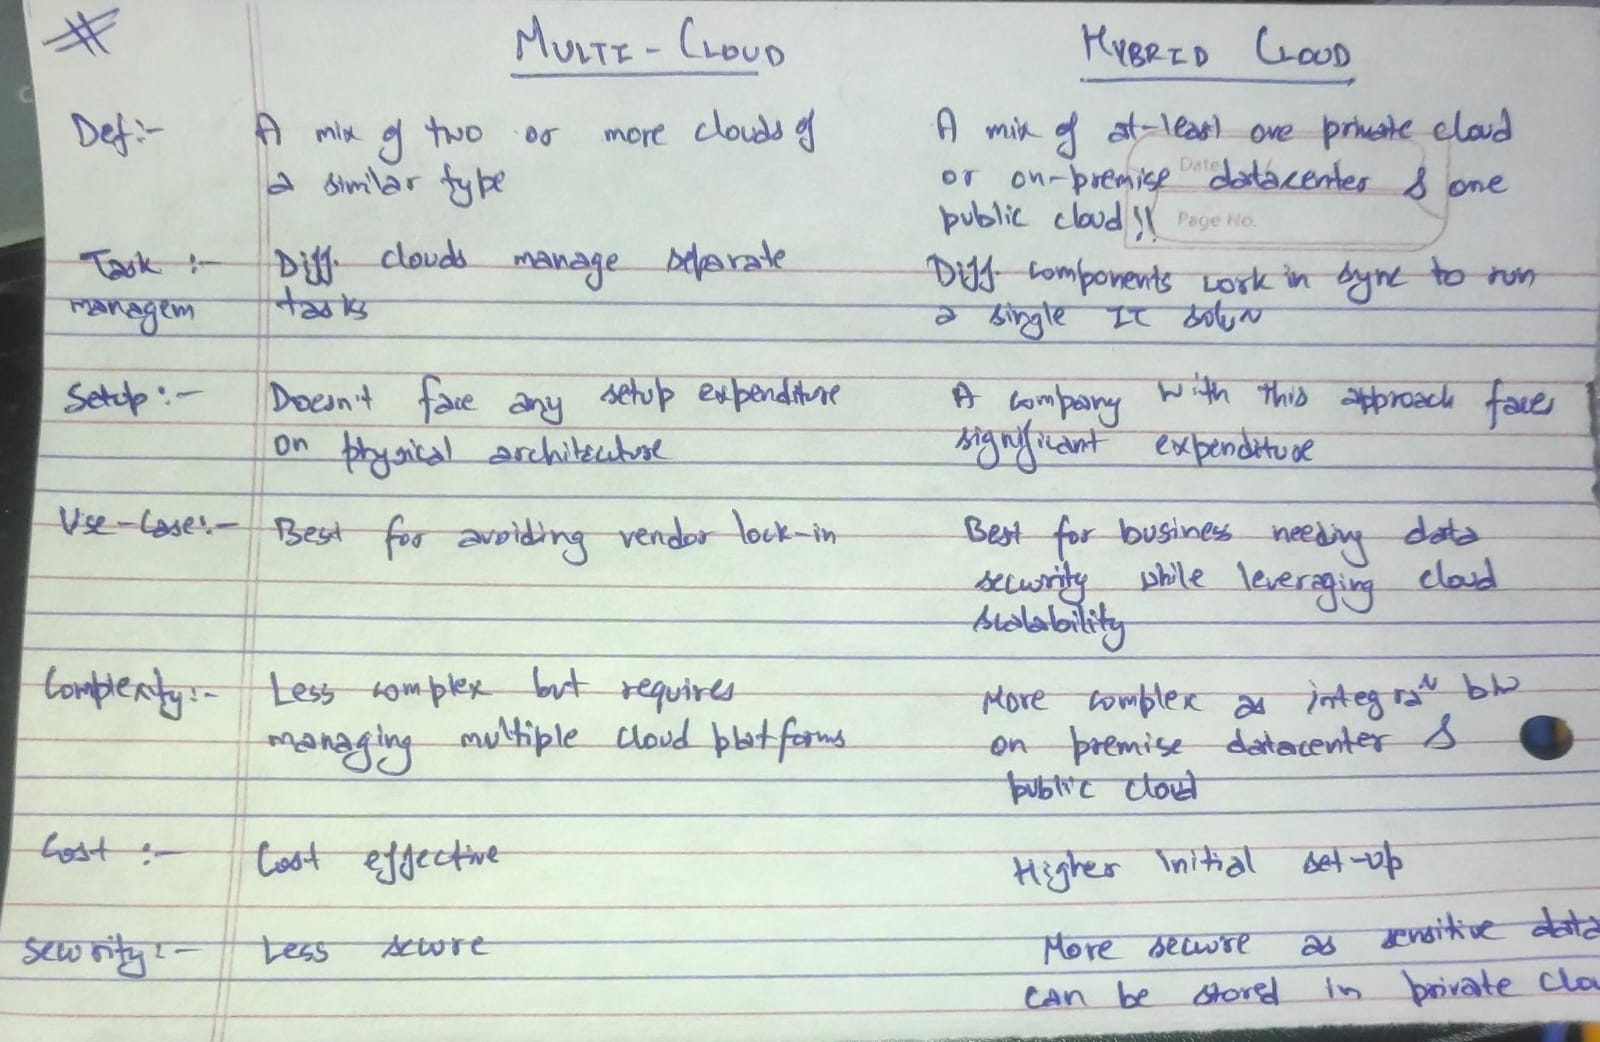 #
MULTI-CLOUD
HYBRID CLOUD
Def:-
A mix of two or more clouds of
a similar type
A mix of at-least one private cloud
or on-premise datacenter & one
public cloud!!
Date
Page No.
Task :-
managem
Diff. clouds manage separate
tasks
Diff. components work in sync to run
a single IT soluN
Setup:-
Doesn't face any setup expenditure
on physical architecture
A company with this approach faces
significant expenditure
Use-Case:-
Best for avoiding vendor lock-in
Best for business needing data
security while leveraging cloud
scalability
Complexity:-
Less complex but requires
managing multiple cloud platforms
More complex as integraN b/w
on premise datacenter &
public cloud
Cost :-
Cost effective
Higher initial set-up
Security:-
Less secure
More secure as sensitive data
can be stored in private clo